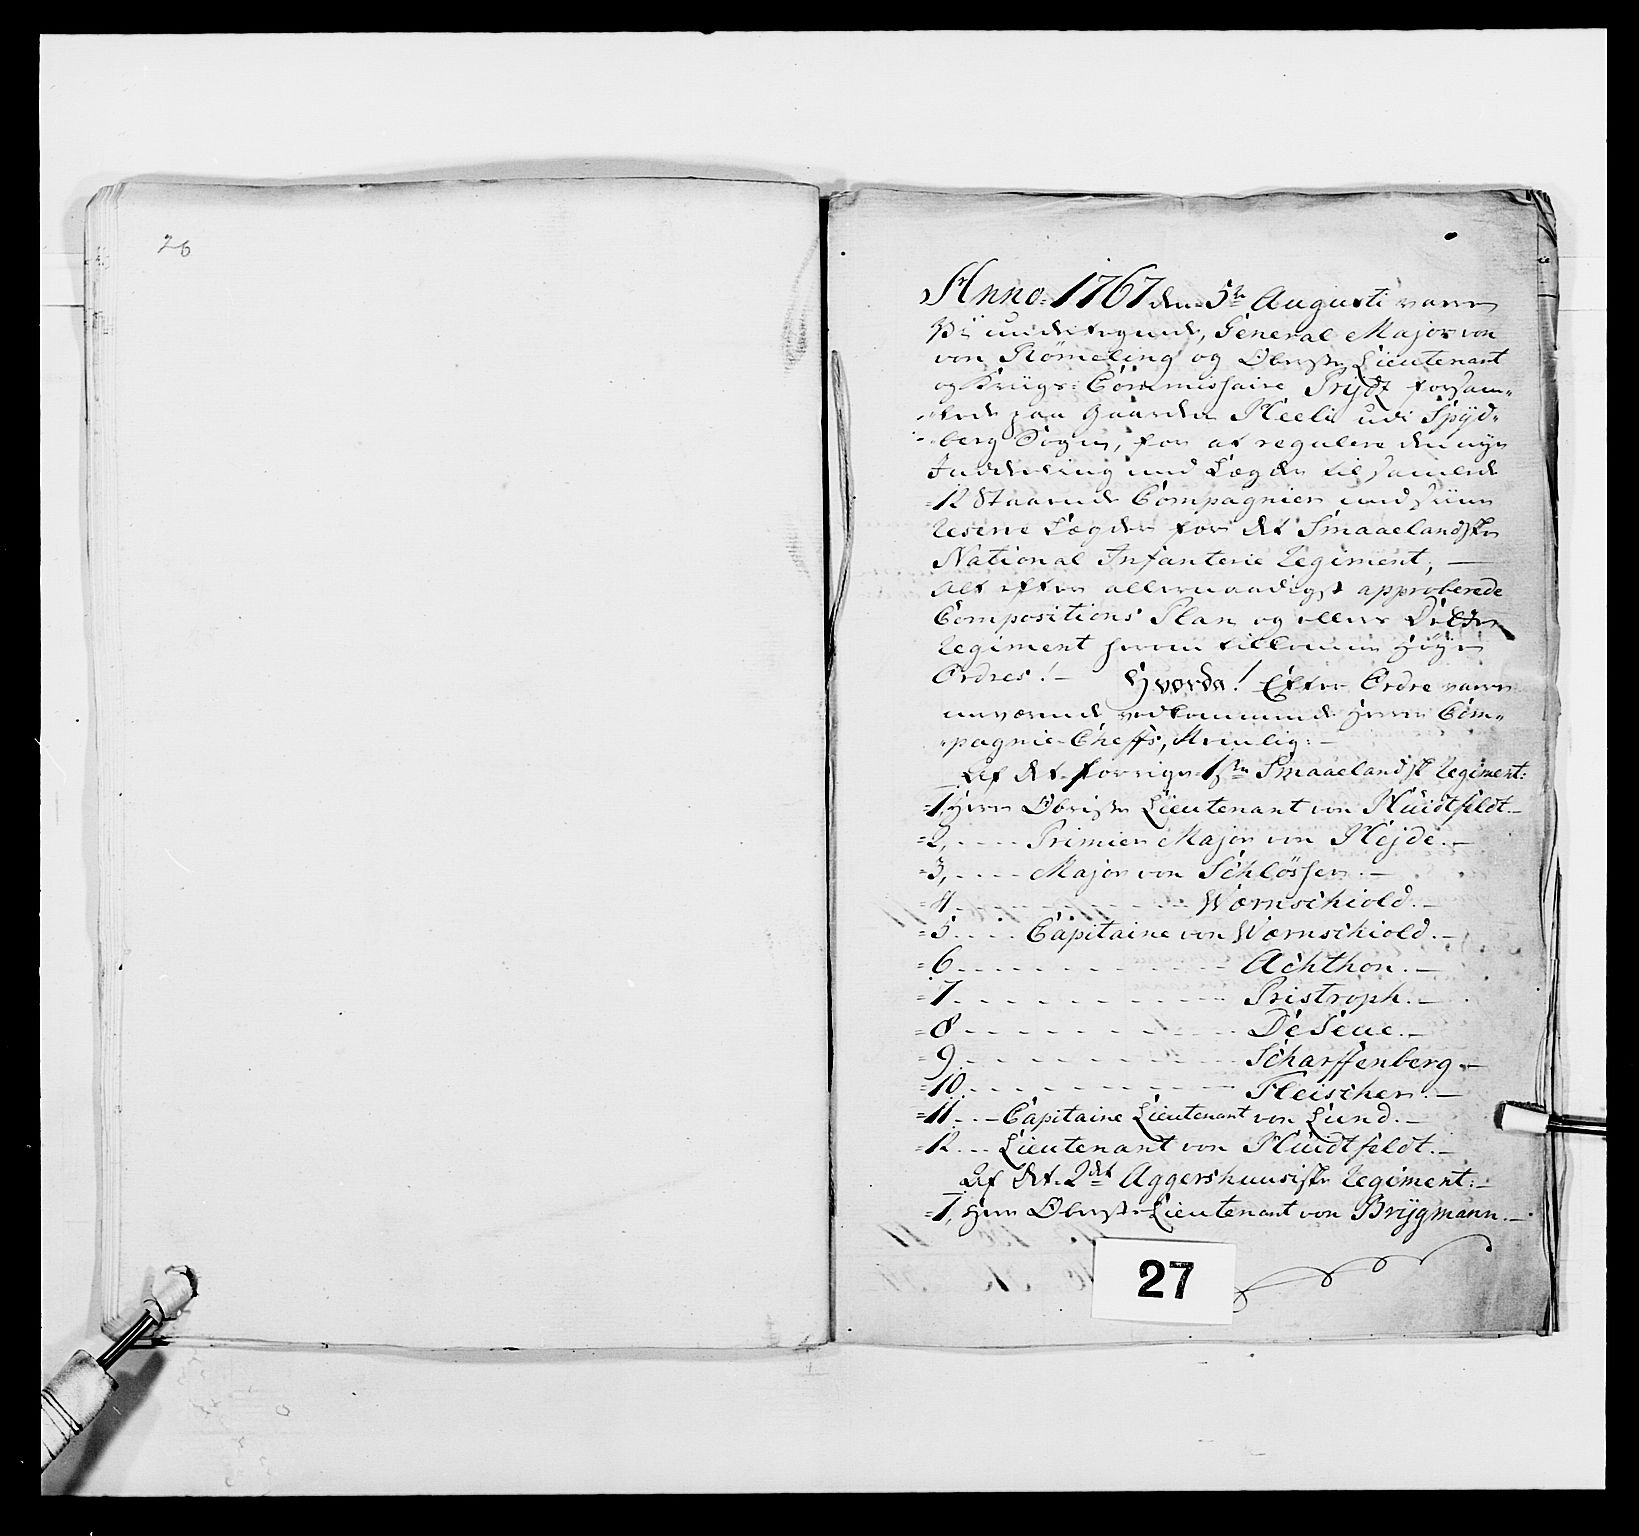 26
Anno 1767 den 5te Augusti vare
Vi undertegnede, General Major von
von Römeling og Oberste Lieutenant
og Kriigs-Commissaire Prydz forsam-
lede paa Gaarden Heelie udi Spyd-
berg Sogn, for at regulere den nye
Inddeeling med Lægder til samtlede
12 Staaende Compagnier med siine
Reserve Lægder for det Smaaelandske
National Infanterie Regiment,
Alt efter allernaadigst approberede
Compositions Plan og ellers
Regiment herom tilkomne høye
Ordres! Hvorda! Efter Ordre vare
nærværende vedkommende Herrer Com-
pagnie-Cheffs, Nemlig:
Af det forrige 1ste Smaaelandsk Regiment:
1, Herr Obriste Lieutenant von Huidtfeldt
2, Primier Major von Hejde.
3, Major von Schlösser.
4 Wærnschiold.
5 Capitaine von Wærnschiold.
6 Achthon.
7 Pristroph.
8 De Seue.
9 Scharffenberg.
10 Fleischer.
11 Capitaine Lieutenant von Lund.
12 Lieutenant von Huidtfeldt.
Af det 2det Aggershuusiske Regiment:
1, Herr Oberste-Lieutenant von Brygmann.
27